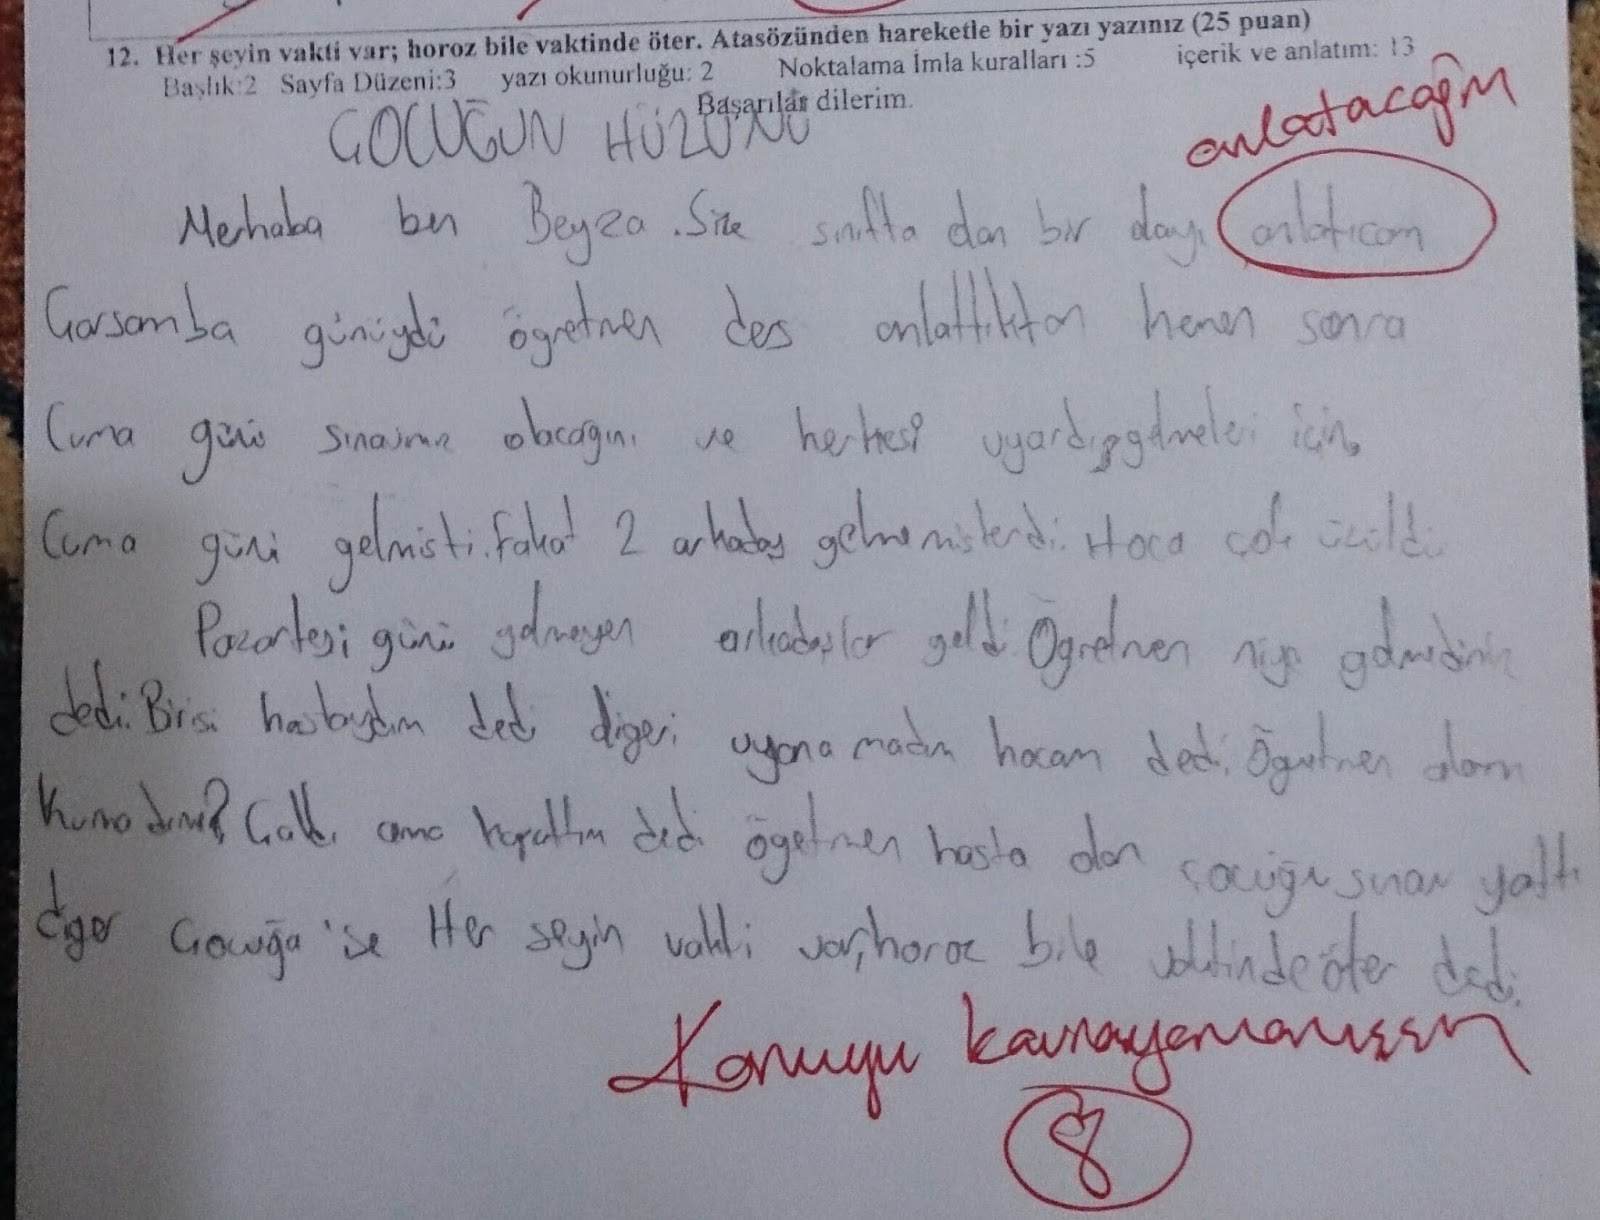 12. Her şeyin vakti var; horoz bile vaktinde öter. Atasözünden hareketle bir yazı yazınız (25 puan)
Başlık:2 Sayfa Düzeni:3 yazı okunurluğu: 2 Noktalama İmla kuralları :5 içerik ve anlatım: 13
Başarılar dilerim.
anlatacağım
ÇOCUĞUN HÜZÜNÜ
Merhaba ben Beyza. Size sınıfta olan bir olayı anlatıcam
Çarsamba günüydü öğretmen ders anlattıktan hemen sonra
Cuma günü olacağını ve herkesi için,
Cuma günü gelmisti. Fakat 2 arkadaş gelmemislerdi. Hoca çok üzüldü
Pazartesi günü gelmeyen arkadaşlar geldi Öğretmen niye gelmediniz
dedi. Birisi hastaydım dedi digeri uyanamadım hocam dedi. Öğretmen alarm
kurmadınmı? Çaldı ama kapattım dedi öğetmen hasta olan çocuğu sınav yaptı
diger Çocuğa 'ise Her seyin vakti var, horoz bile vaktinde öter dedi.
Konuyu kavrayamamışsın
8